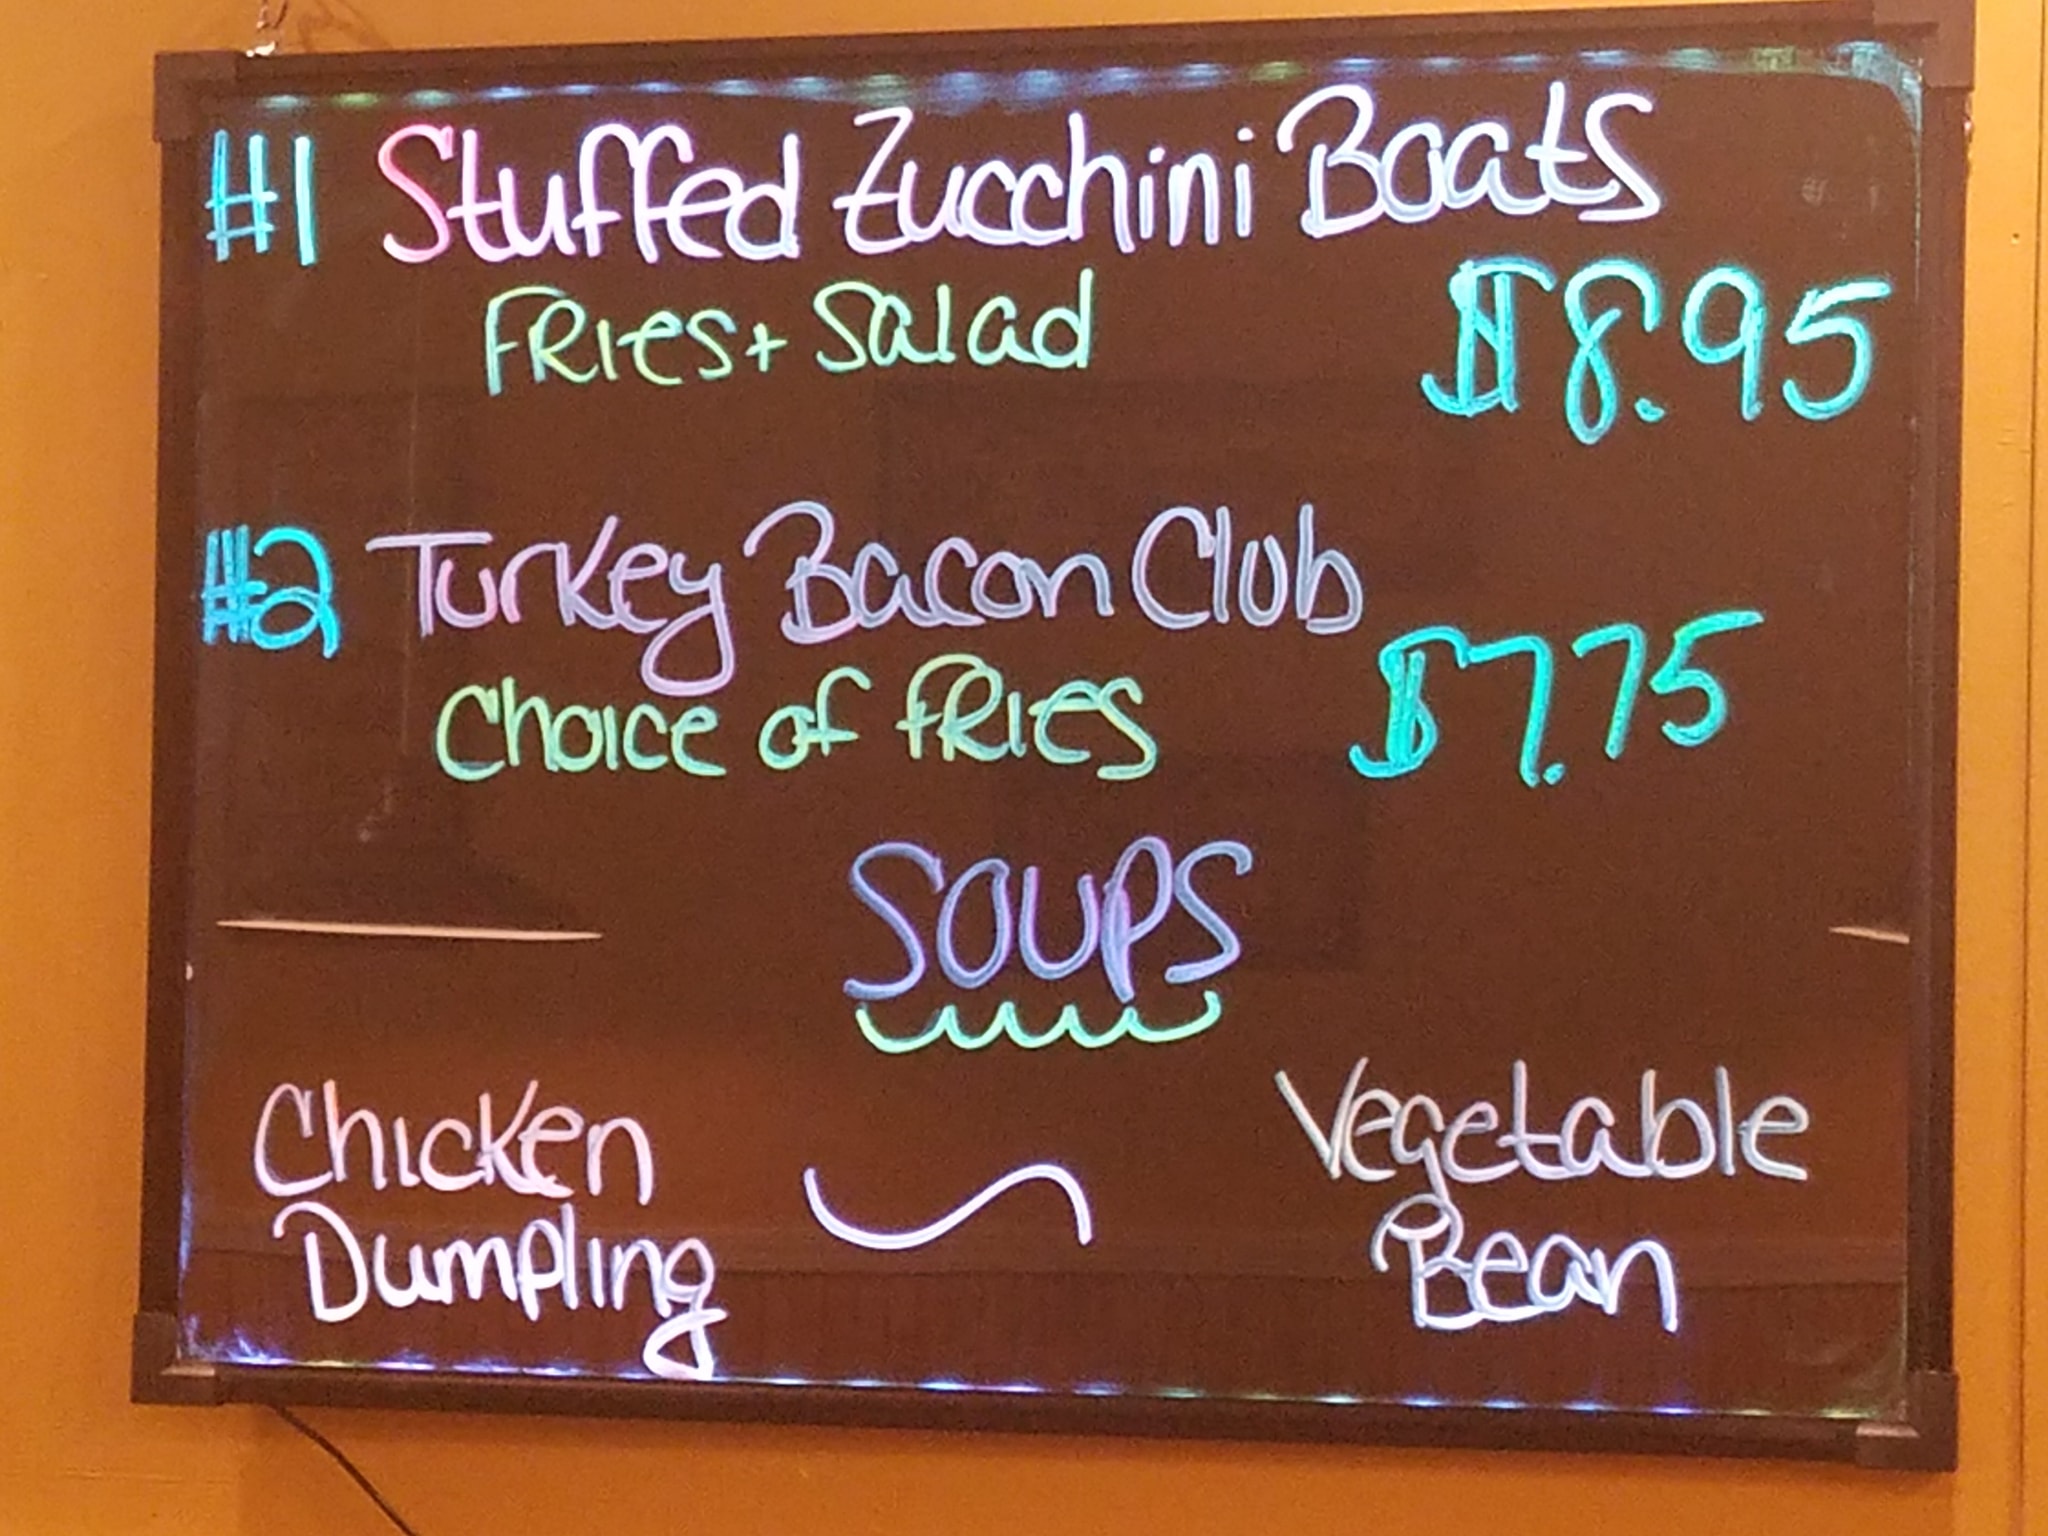 #1 Stuffed Zucchini Boats
Fries + Salad
$8.95
#2 Turkey Bacon Club
Choice of Fries
$7.75
SOUPS
Chicken
Dumpling
Vegetable
Bean